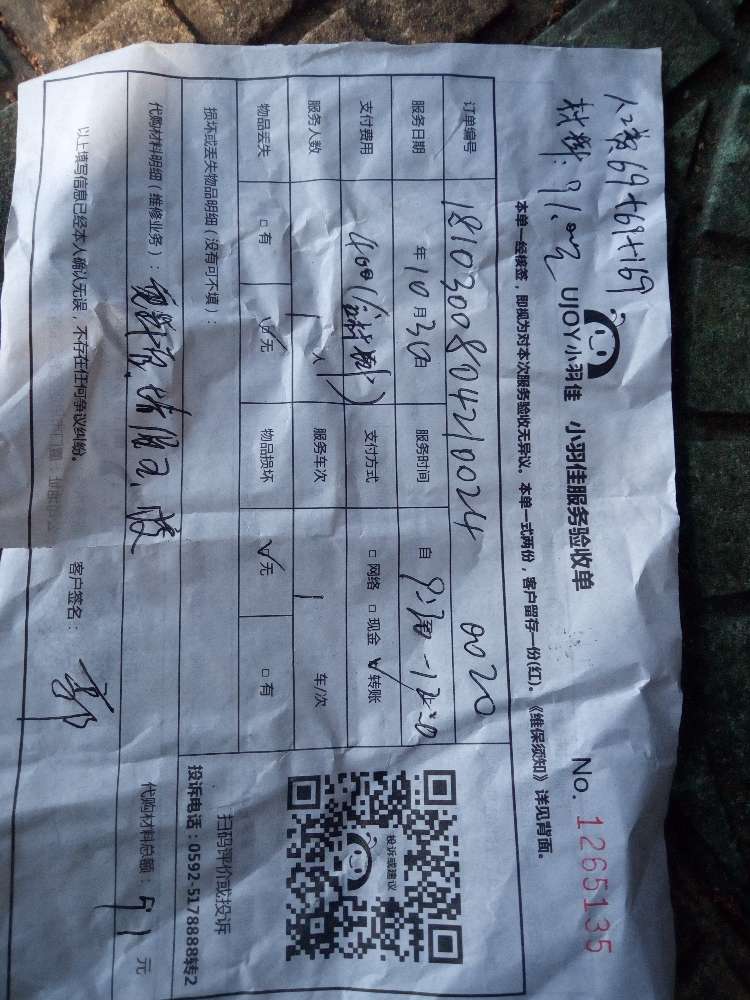 人工费69+69+169
材料:91.0元
UJOY小羽佳 小羽佳服务验收单 No. 1265135
本单一经核签，即视为对本次服务验收无异议。本单一式两份，客户留存一份(红)。《维保须知》详见背面。
订单编号 1810300804210024 0020
服务日期 年10月30日 服务时间 自
支付费用 400(含材料) 支付方式 □网络 □现金 ☑转账
服务人数 1人 服务车次 1 车/次
物品丢失 □有 ☑无 物品损坏 ☑无 □有
损坏或丢失物品明细（没有可不填）：
代购材料明细（维修业务）：
代购材料总额：91元
以上填写信息已经本人确认无误，不存在任何争议纠纷。
客户签名：
投诉或建议
扫码评价或投诉
投诉电话：0592-5178888转2